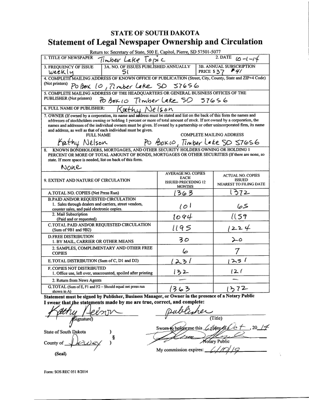 STATE OF SOUTH DAKOTA
Statement of Legal Newspaper Ownership and Circulation
Return to: Secretary of State, 500 E. Capitol, Pierre, SD 57501-5077
1. TITLE OF NEWSPAPER Timber Lake Topic 2. DATE 10-1-14
3. FREQUENCY OF ISSUE weekly 3A. NO. OF ISSUES PUBLISHED ANNUALLY 51 3B. ANNUAL SUBSCRIPTION PRICE $37 $41
4. COMPLETE MAILING ADDRESS OF KNOWN OFFICE OF PUBLICATION (Street, City, County, State and ZIP+4 Code)
(Not printers) PO Box 10, Timber Lake SD 57656
5. COMPLETE MAILING ADDRESS OF THE HEADQUARTERS OR GENERAL BUSINESS OFFICES OF THE
PUBLISHER (Not printers) PO Box 10 Timber Lake SD 57656
6. FULL NAME OF PUBLISHER: Kathy Nelson
7. OWNER (If owned by a corporation, its name and address must be stated and list on the back of this form the names and
addresses of stockholders owning or holding 1 percent or more of total amount of stock. If not owned by a corporation, the
names and addresses of the individual owners must be given. If owned by a partnership or other unincorporated firm, its name
and address, as well as that of each individual must be given.
FULL NAME COMPLETE MAILING ADDRESS
Kathy Nelson PO Box 10 Timber Lake SD 57656
8. KNOWN BONDHOLDERS, MORTGAGEES, AND OTHER SECURITY HOLDERS OWNING OR HOLDING 1
PERCENT OR MORE OF TOTAL AMOUNT OF BONDS, MORTGAGES OR OTHER SECURITIES (If there are none, so
state. If more space is needed, list on back of this form.
None
9. EXTENT AND NATURE OF CIRCULATION AVERAGE NO. COPIES EACH ISSUED PRECEDING 12 MONTHS ACTUAL NO. COPIES ISSUED NEAREST TO FILING DATE
A.TOTAL NO. COPIES (Net Press Run) 1363 1372
B.PAID AND/OR REQUESTED CIRCULATION
1. Sales through dealers and carriers, street vendors, counter sales, and paid electronic copies. 101 65
2. Mail Subscriptions (Paid and or requested) 1094 1159
C.TOTAL PAID AND/OR REQUESTED CIRCULATION (Sum of 9B1 and 9B2) 1195 1224
D.FREE DISTRIBUTION
1. BY MAIL, CARRIER OR OTHER MEANS 30 20
2. SAMPLES, COMPLIMENTARY AND OTHER FREE COPIES 6 7
E.TOTAL DISTRIBUTION (Sum of C, D1 and D2) 1231 1251
F.COPIES NOT DISTRIBUTED
1. Office use, left over, unaccounted, spoiled after printing 132 121
2. Return from News Agents
G.TOTAL (Sum of E, F1 and F2 - Should equal net press run shown in A) 1363 1372
Statement must be signed by Publisher, Business Manager, or Owner in the presence of a Notary Public
I swear that the statements made by me are true, correct, and complete:
Kathy Nelson publisher
(Signature) (Title)
State of South Dakota ) Sworn to before me this
) §
County of Dewey ) Notary Public
(Seal) My commission expires:
Form: SOS REC 051 8/2014